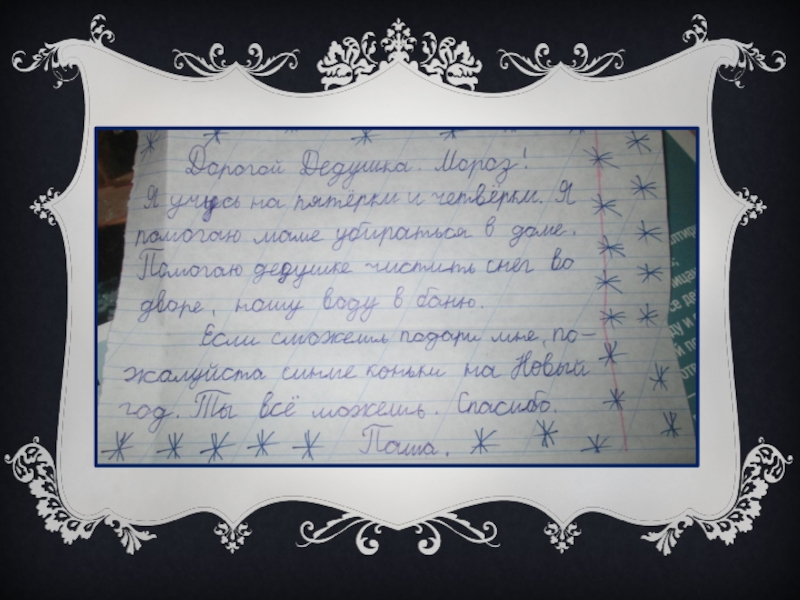 Дорогой Дедушка. Мороз!
Я учусь на пятёрки и четвёрки. Я
помогаю маме убираться в доме.
Помогаю дедушке чистить снег во
дворе, ношу воду в баню.
Если сможешь подари мне, по-
жалуйста синие коньки на Новый
год. Ты всё можешь. Спасибо.
Паша.